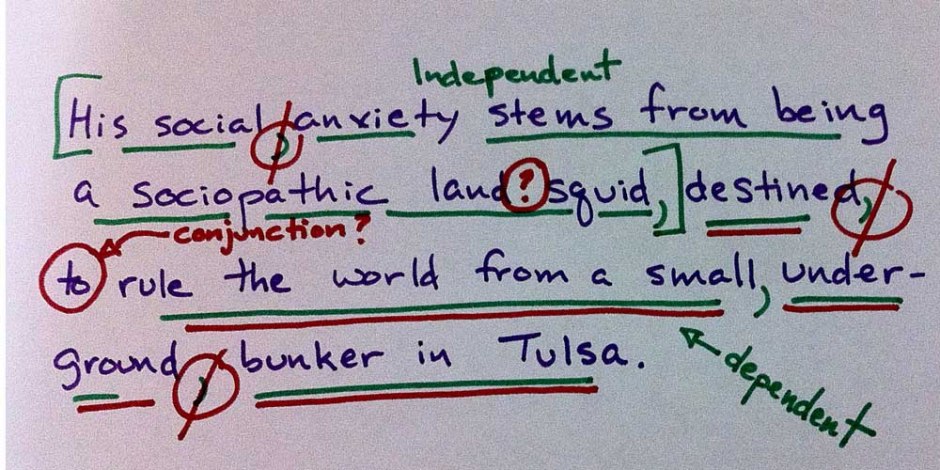 Independent
[His social, anxiety stems from being
a sociopathic land ? squid,] destined,
conjunction?
to rule the world from a small, under-
ground, bunker in Tulsa.
dependent